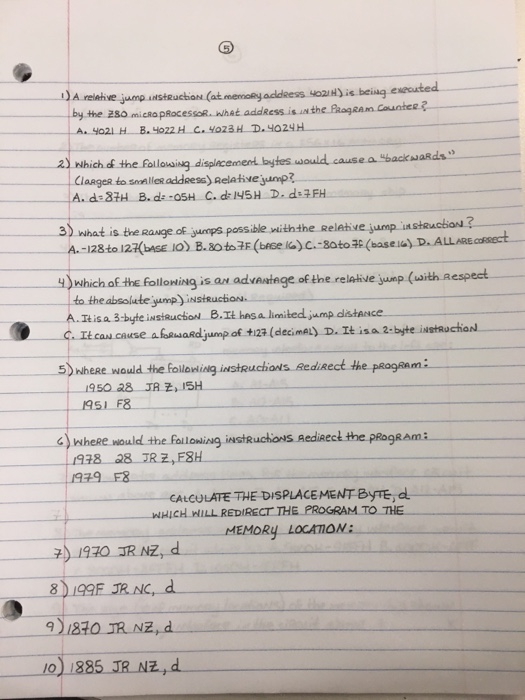 5
1) A relative jump instruction (at memory address 4021H) is being executed
by the Z80 microprocessor. What address is in the Program Counter?
A. 4021 H B. 4022 H C. 4023H D. 4024H
2) Which of the following displacement bytes would cause a "backwards"
(larger to smaller address) Relative jump?
A. d=87H B. d=-05H C. d=145H D. d=7FH
3) What is the Range of jumps possible with the Relative jump instruction?
A. -128 to 127 (base 10) B. 80 to 7F (base 16) C. -80 to 7F (base 16) D. ALL ARE CORRECT
4) Which of the following is an advantage of the relative jump (with respect
to the absolute jump) instruction.
A. It is a 3-byte instruction B. It has a limited jump distance
C. It can cause a forward jump of +127 (decimal) D. It is a 2-byte instruction
5) Where would the following instructions Redirect the program:
1950 28 JR Z, 15H
1951 F8
6) Where would the following instructions Redirect the program:
1978 28 JR Z, F8H
1979 F8
CALCULATE THE DISPLACEMENT BYTE, d
WHICH WILL REDIRECT THE PROGRAM TO THE
MEMORY LOCATION:
7) 1970 JR NZ, d
8) 199F JR NC, d
9) 1870 JR NZ, d
10) 1885 JR NZ, d